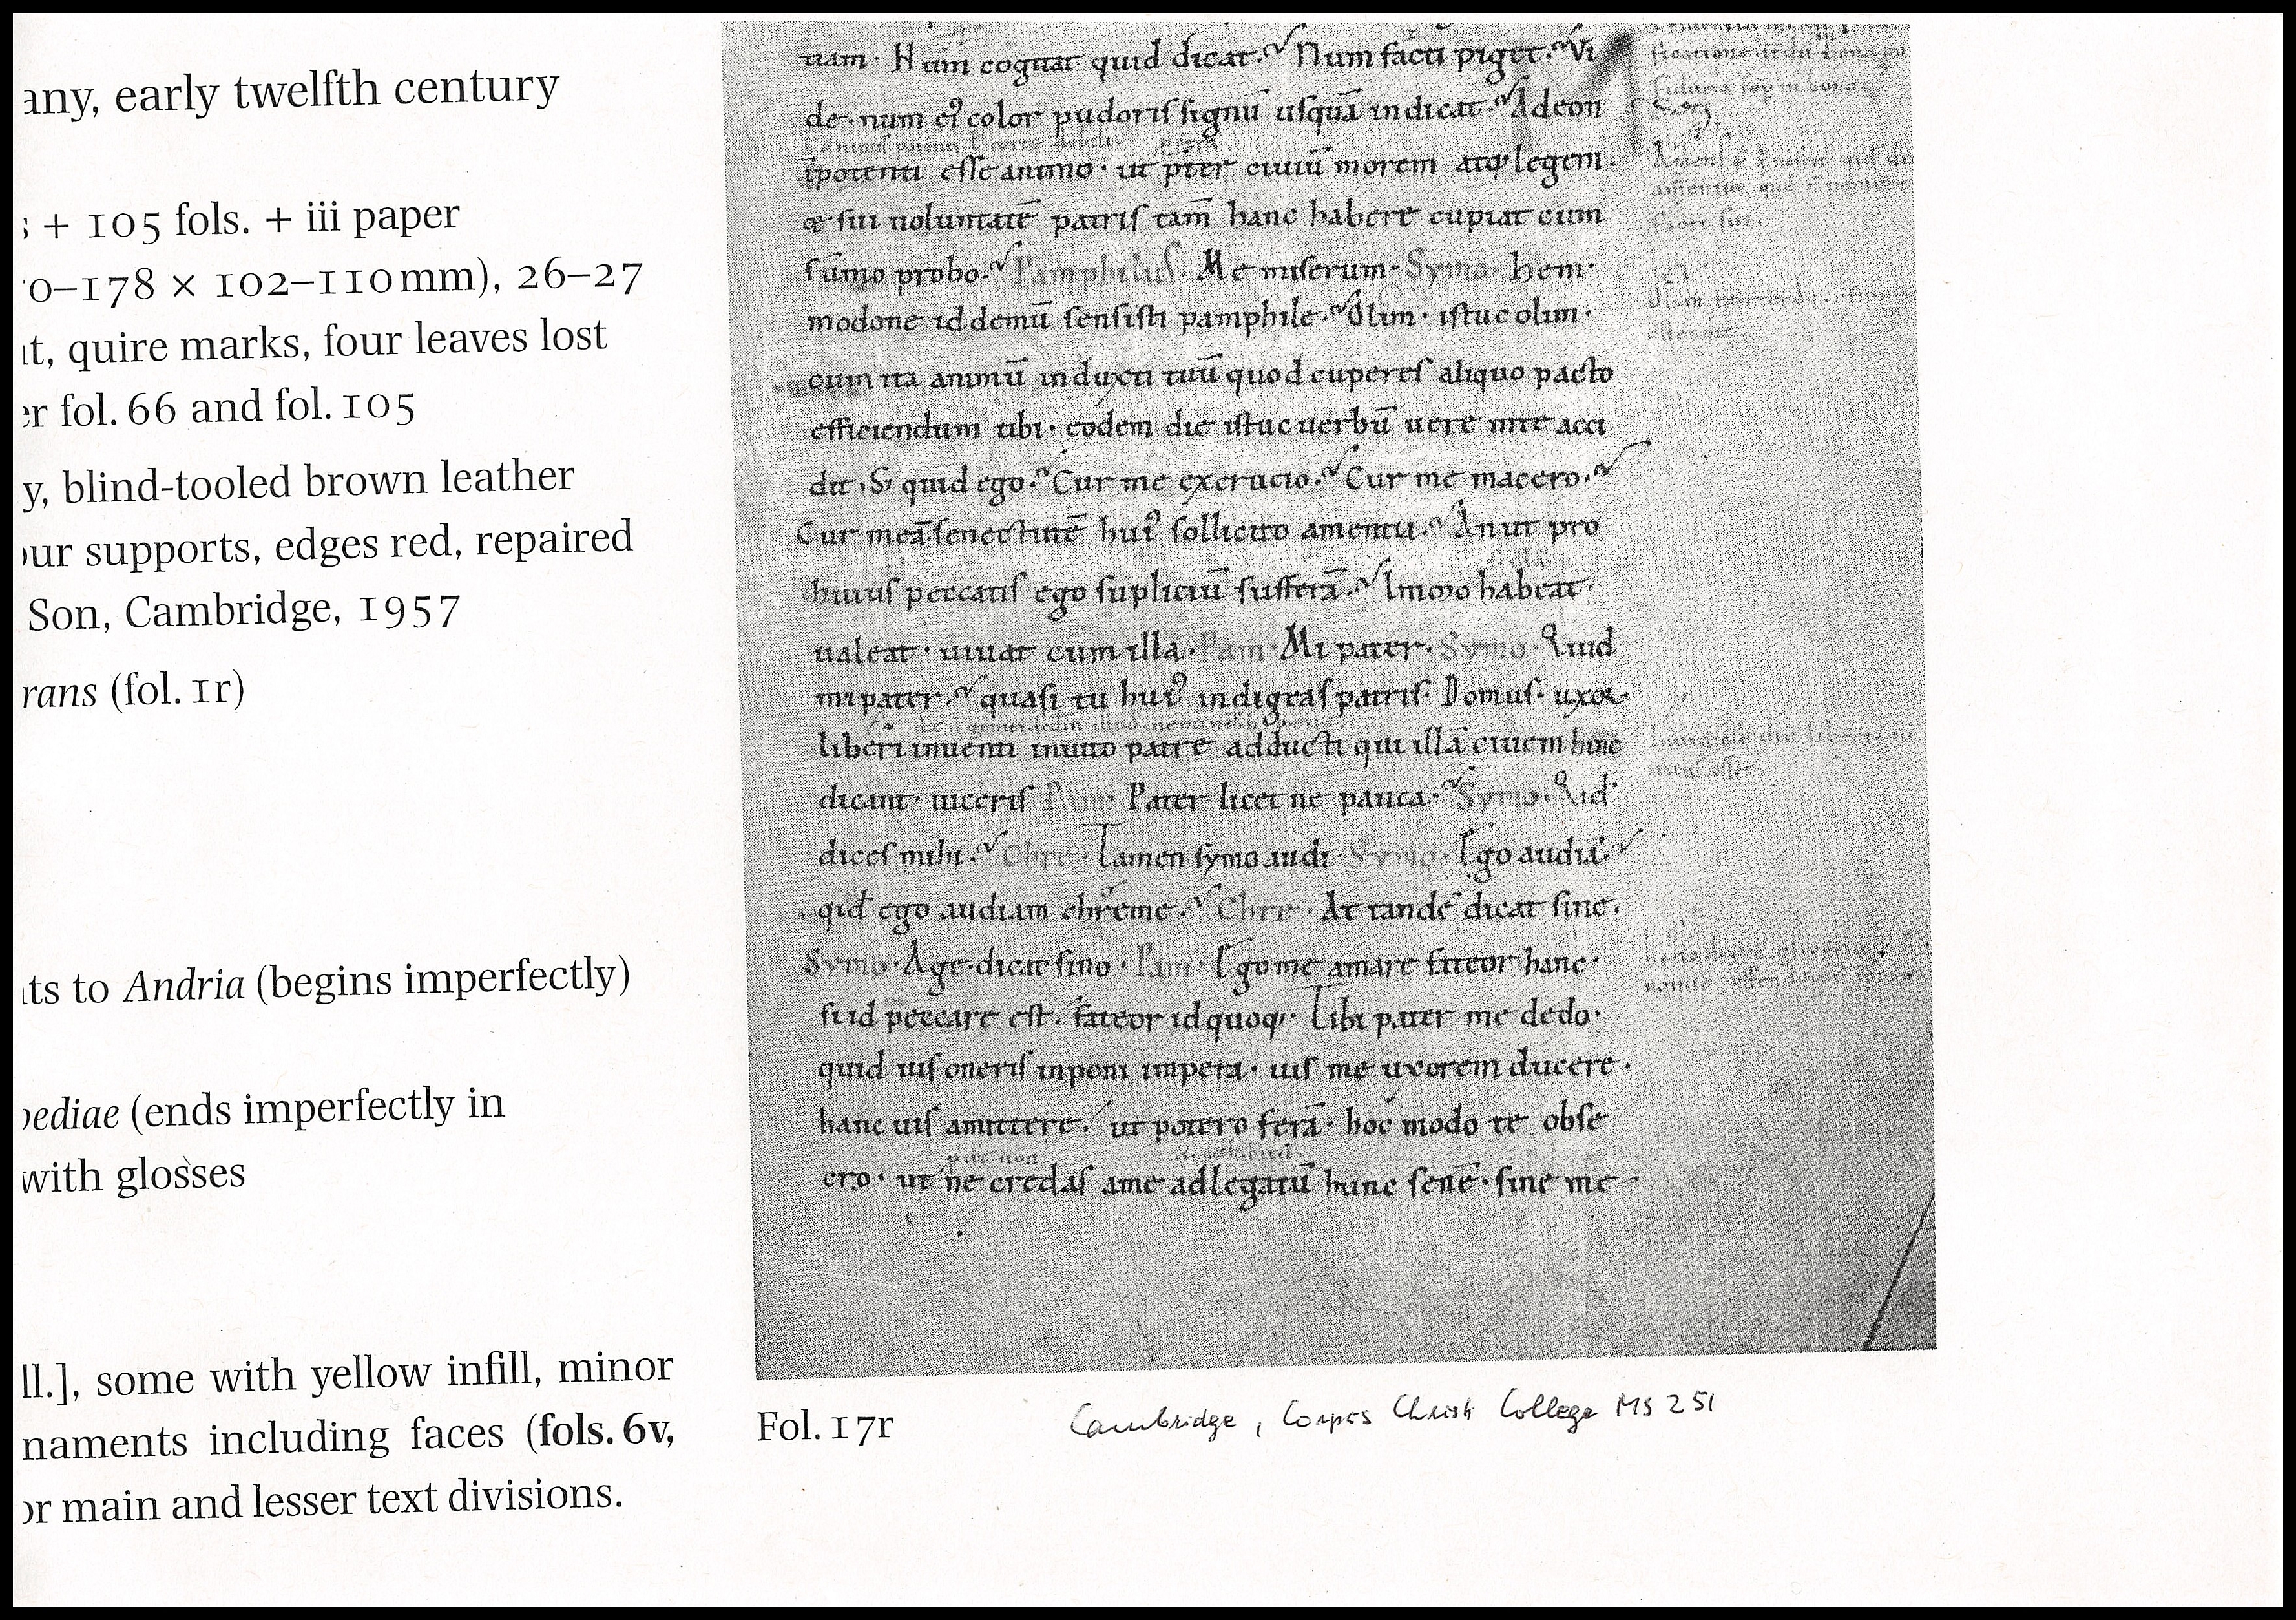 any, early twelfth century
s + 105 fols. + iii paper
0–178 × 102–110mm), 26–27
nt, quire marks, four leaves lost
er fol. 66 and fol. 105
y, blind-tooled brown leather
our supports, edges red, repaired
Son, Cambridge, 1957
rans (fol. 1r)
ts to Andria (begins imperfectly)
pediae (ends imperfectly in
with glosses
ll.], some with yellow infill, minor
naments including faces (fols. 6v,
or main and lesser text divisions.
Num cogitat quid dicat. Num facti piget. Vi
de. num eiꝰ color pudoris signū usquā indicat. Adeon
īpotenti esse animo. ut p̄ter ciuiū morem atq; legem.
& sui uoluntatē patris tam̄ hanc habere cupiat cum
sūmo probo. Pamphilus. Me miserum. Symo. hem.
modone id demū sensisti pamphile. Olim. istuc olim.
cum ita animū induxti tuū quod cuperes aliquo pacto
efficiendum tibi. eodem die istuc uerbū uere in te acci
dit. Si quid ego. Cur me excrucio. Cur me macero.
Cur meā senectutē huiꝰ sollicito amentia. An ut pro
huius peccatis ego supliciū sufferā. Immo habeat.
ualeat. uiuat cum illa. Pam. Mi pater. Symo. Quid
mi pater. quasi tu huiꝰ indigeas patris. Domus. uxor
liberi inuenti inuito patre adducti qui illā ciuem hinc
dicant. uiceris Pam. Pater licet ne pauca. Symo. Qid
dices mihi. Chre. Tamen symo audi. Symo. Ego audiā.
qid ego audiam chreme. Chre. At tandē dicat sine.
Symo. Age. dicat sino. Pam. Ego me amare fateor hanc.
si id peccare est. fateor id quoq;. Tibi pater me dedo.
quid uis oneris inponi impera. uis me uxorem ducere.
hanc uis amittere. ut potero ferā. hoc modo te obse
cro. ut ne credas a me adlegatū hunc senē. sine me
Fol. 17r
Cambridge, Corpus Christi College MS 251